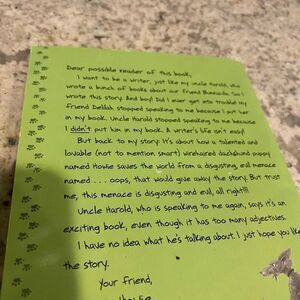 Dear possible reader of this book,
I want to be a writer, just like my uncle Harold, who
wrote a bunch of books about our friend Bunnicula. So I
wrote this story. And boy! Did I ever get into trouble! My
friend Delilah stopped speaking to me because I put her
in my book. Uncle Harold stopped speaking to me because
I didn't put him in my book. A writer's life isn't easy!
But back to my story. It's about how a talented and
lovable (not to mention smart) wirehaired dachshund puppy
named Howie saves the world from a disgusting, evil menace
named . . . oops, that would give away the story. But trust
me, this menace is disgusting and evil, all right!!!
Uncle Harold, who is speaking to me again, says it's an
exciting book, even though it has too many adjectives.
I have no idea what he's talking about. I just hope you like
the story.
Your friend,
Howie